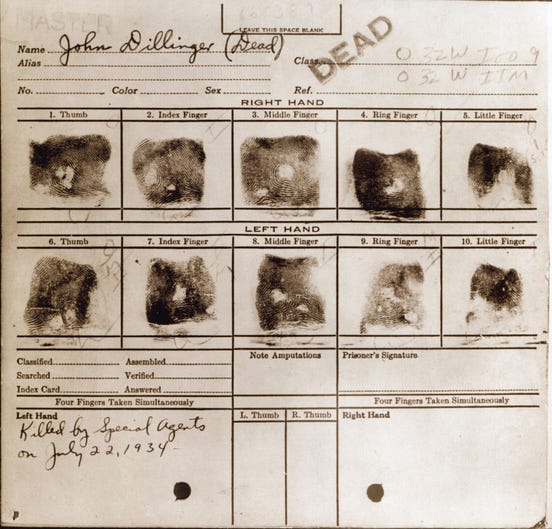 MASTER
LEAVE THIS SPACE BLANK
Name John Dillinger (Dead)
DEAD
Alias
Class. O 32 W I O O 9
O 32 W I I M
No. Color Sex Ref.
RIGHT HAND
1. Thumb 2. Index Finger 3. Middle Finger 4. Ring Finger 5. Little Finger
LEFT HAND
6. Thumb 7. Index Finger 8. Middle Finger 9. Ring Finger 10. Little Finger
Classified Assembled Note Amputations Prisoner's Signature
Searched Verified
Index Card Answered
Four Fingers Taken Simultaneously Four Fingers Taken Simultaneously
Left Hand L. Thumb R. Thumb Right Hand
Killed by Special Agents
on July 22, 1934-